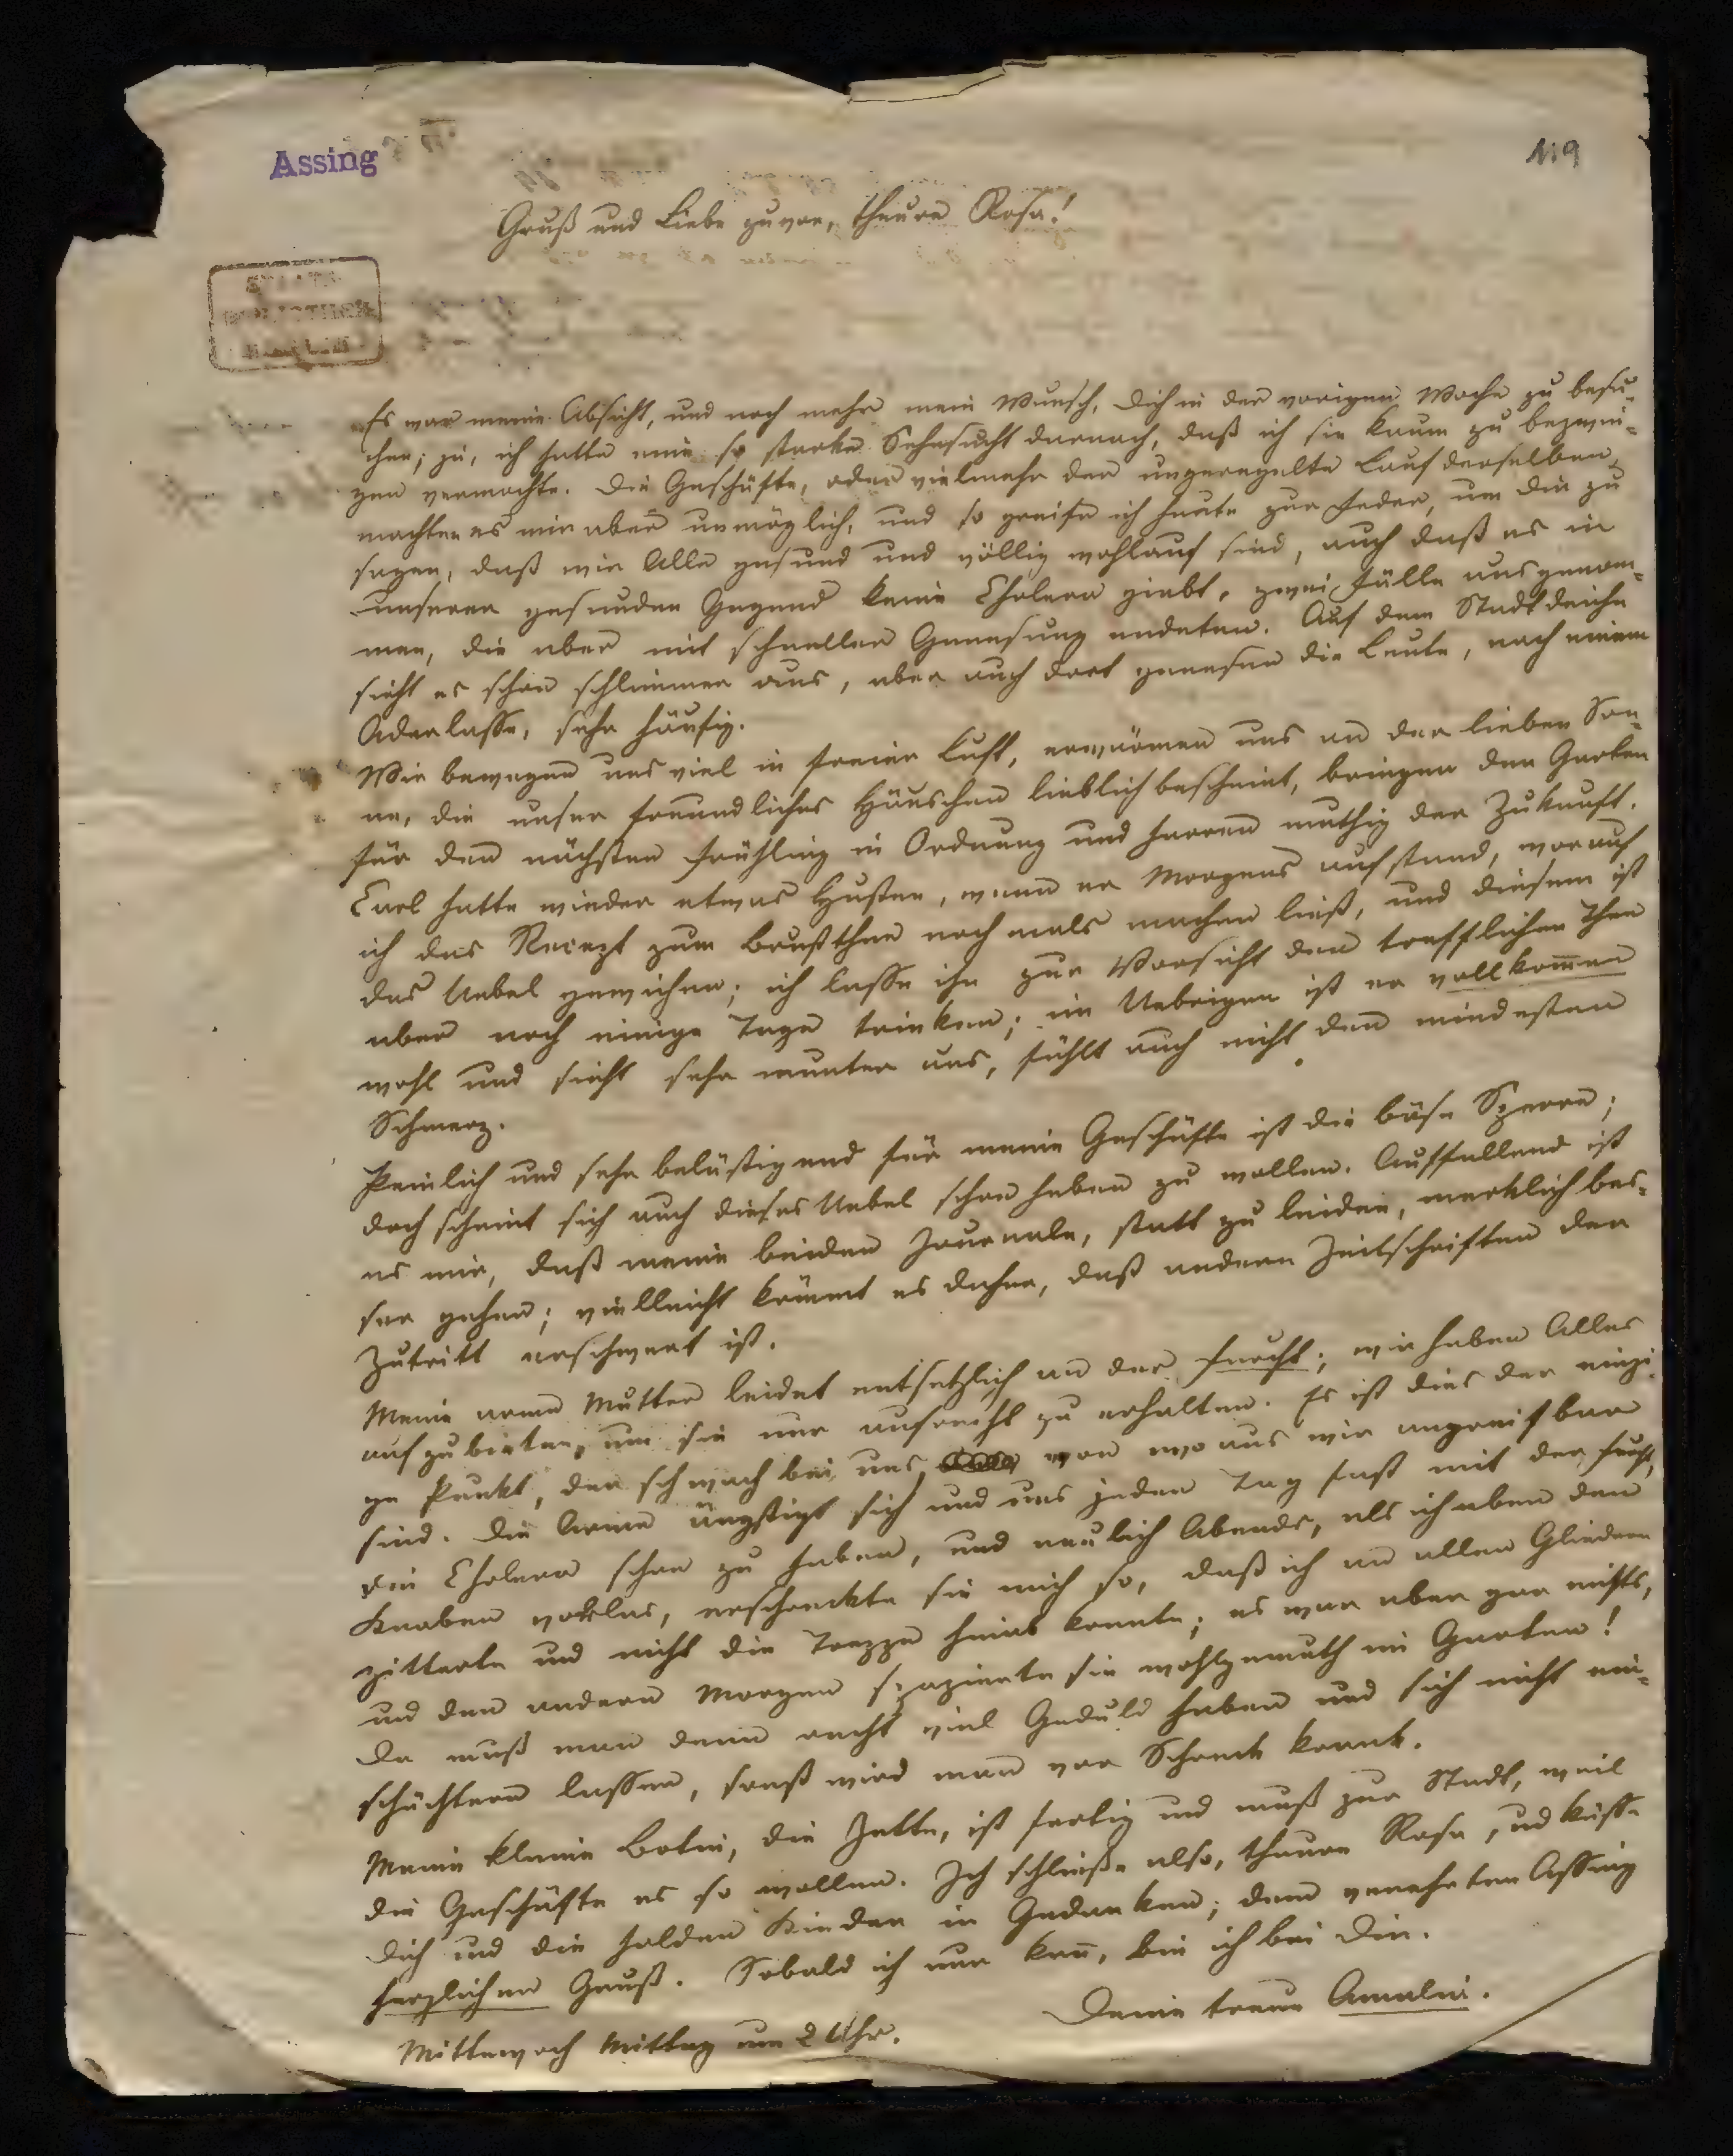 Assing
119
Gruß und Liebe zuvor, theure Rosa!
Es war meine Absicht, und noch mehr mein Wunsch, Dich in der vorigen Woche zu besu-
chen; ja, ich hatte eine so starke Sehnsucht darnach, daß ich sie kaum zu bezwin-
gen vermochte. Die Geschäfte, oder vielmehr der ungeregelte Lauf derselben,
machten es mir aber unmöglich, und so greife ich heute zur Feder, um Dir zu
sagen, daß wir Alle gesund und völlig wohlauf sind, auch daß es in
unserer gesunden Gegend keine Cholera giebt, zwei Fälle ausgenom-
men, die aber mit schneller Genesung endeten. Auf dem Stadtdeiche
sieht es schon schlimmer aus, aber auch dort genesen die Leute, nach einem
Aderlasse, sehr häufig.
Wir bewegen uns viel in freier Luft, erwärmen uns an der lieben Son-
ne, die unser freundliches Häuschen lieblich bescheint, bringen den Garten
für den nächsten Frühling in Ordnung und harren muthig der Zukunft.
Carl hatte wieder etwas Husten, wenn er Morgens aufstand, worauf
ich das Recept zum Brustthee noch mals machen ließ, und diesem ist
das Uebel gewichen; ich lasse ihn zur Vorsicht den trefflichen Thee
aber noch einige Tage trinken; im Uebrigen ist er vollkommen
wohl und sieht sehr munter aus, fühlt auch nicht den mindesten
Schmerz.
Peinlich und sehr belästigend für meine Geschäfte ist die böse Sperre;
doch scheint sich auch dieses Uebel schon heben zu wollen. Auffallend ist
es mir, daß meine beiden Journale, statt zu leiden, merklich bes-
ser gehen; vielleicht kömmt es daher, daß andern Zeitschriften der
Zutritt erschwert ist.
Meine arme Mutter leidet entsetzlich an der Furcht; wir haben Alles
aufzubieten, um sie nur aufrecht zu erhalten. Es ist dies der einzi-
ge Punkt, der schwach bei uns, von wo aus wir angreifbar
sind. Die Arme ängstigt sich und uns jeden Tag fast mit der Furcht,
die Cholera schon zu haben, und neulich Abends, als ich eben den
Knaben vorlas, erschreckte sie mich so, daß ich an allen Gliedern
zitterte und nicht die Treppe hinab konnte; es war aber gar nichts,
und den andern Morgen spazierte sie wohlgemuth im Garten!
Da muß man denn recht viel Geduld haben und sich nicht ein-
schüchtern lassen, sonst wird man vor Schreck krank.
Meine kleine Botin, die Jette, ist fertig und muß zur Stadt, weil
die Geschäfte es so wollen. Ich schließe also, theure Rosa, und küsse
Dich und die holden Kinder in Gedanken; dem verehrten Assing
herzlichen Gruß. Sobald ich nur kann, bin ich bei Dir.
Deine treue Amalie.
Mittewoch Mittag um 2 Uhr.